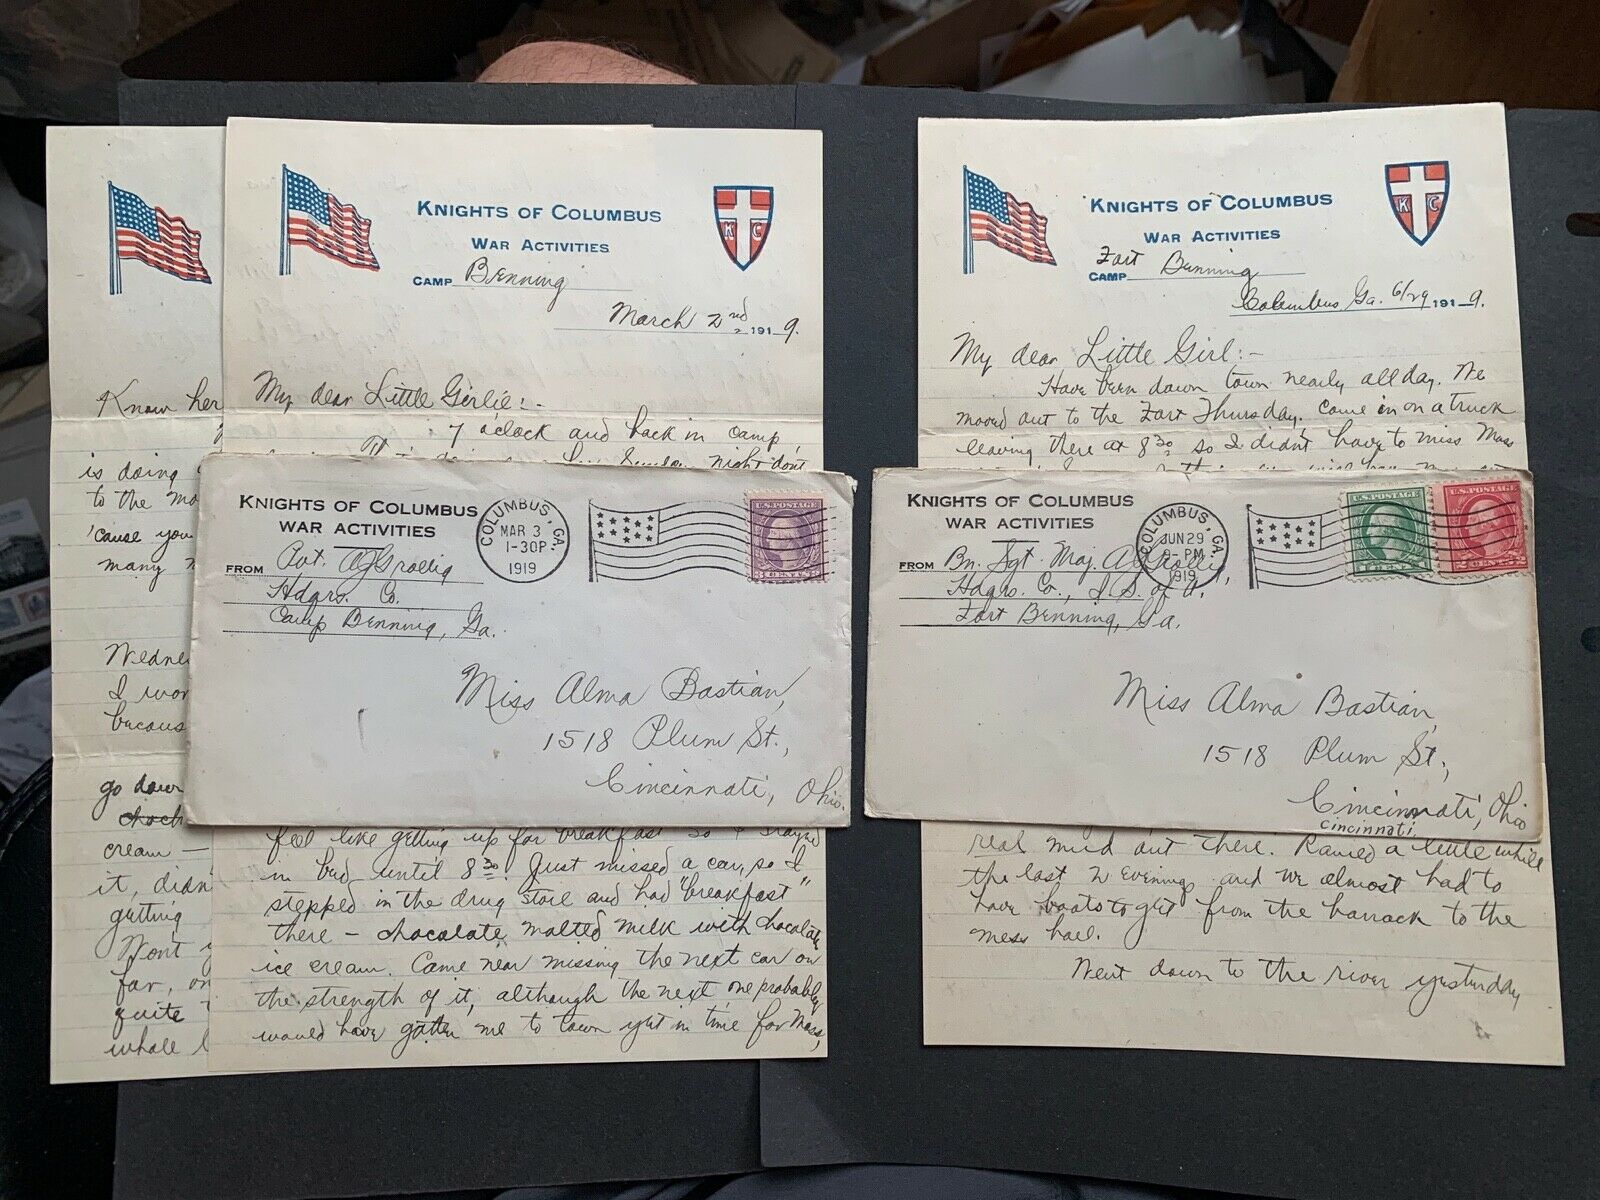 Know her
is doing
to the mo
'cause you
many
Wednes
I wor
becaus
go down
choch
cream —
it, didn
getting
Wont y
far, on
quite
whole l
KNIGHTS OF COLUMBUS
WAR ACTIVITIES
K C
CAMP Benning
March 2nd 1919.
My dear Little Girlie:-
7 o'clock and back in camp,
night don't
KNIGHTS OF COLUMBUS
WAR ACTIVITIES
FROM Pvt.
Hdqrs. Co.
Camp Benning, Ga.
COLUMBUS, GA.
MAR 3
1-30P.
1919
U.S. POSTAGE
3 CENTS 3
Miss Alma Bastian,
1518 Plum St.,
Cincinnati, Ohio.
feel like getting up for breakfast so I stayed
in bed until 8 30. Just missed a car, so I
stepped in the drug store and had "breakfast"
there – chocolate malted milk with chocolate
ice cream. Came near missing the next car on
the strength of it, although the next one probably
would have gotten me to town yet in time for Mass,
KNIGHTS OF COLUMBUS
WAR ACTIVITIES
K C
Fort
CAMP Benning
Columbus Ga. 6/29 1919.
My dear Little Girl:-
Have been down town nearly all day. We
moved out to the Fort Thursday. Came in on a truck
leaving there at 8 30 so I didn't have to miss Mass
KNIGHTS OF COLUMBUS
WAR ACTIVITIES
FROM Bn. Sgt. Maj.
Hdqrs. Co., I. S. of A.,
Fort Benning, Ga.
COLUMBUS, GA.
JUN 29
PM
1919
U.S. POSTAGE
1 CENT 1
U.S. POSTAGE
2 CENTS 2
Miss Alma Bastian,
1518 Plum St.,
Cincinnati, Ohio
cincinnati,
real mud out there. Rained a little while
the last 2 evenings and we almost had to
have boats to get from the barrack to the
mess hall.
Went down to the river yesterday